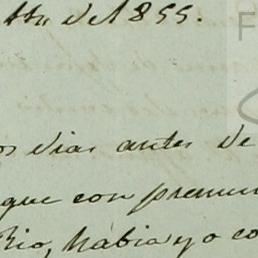 del 1855.
os dias antes de
que con premu
Rio, habia yo co